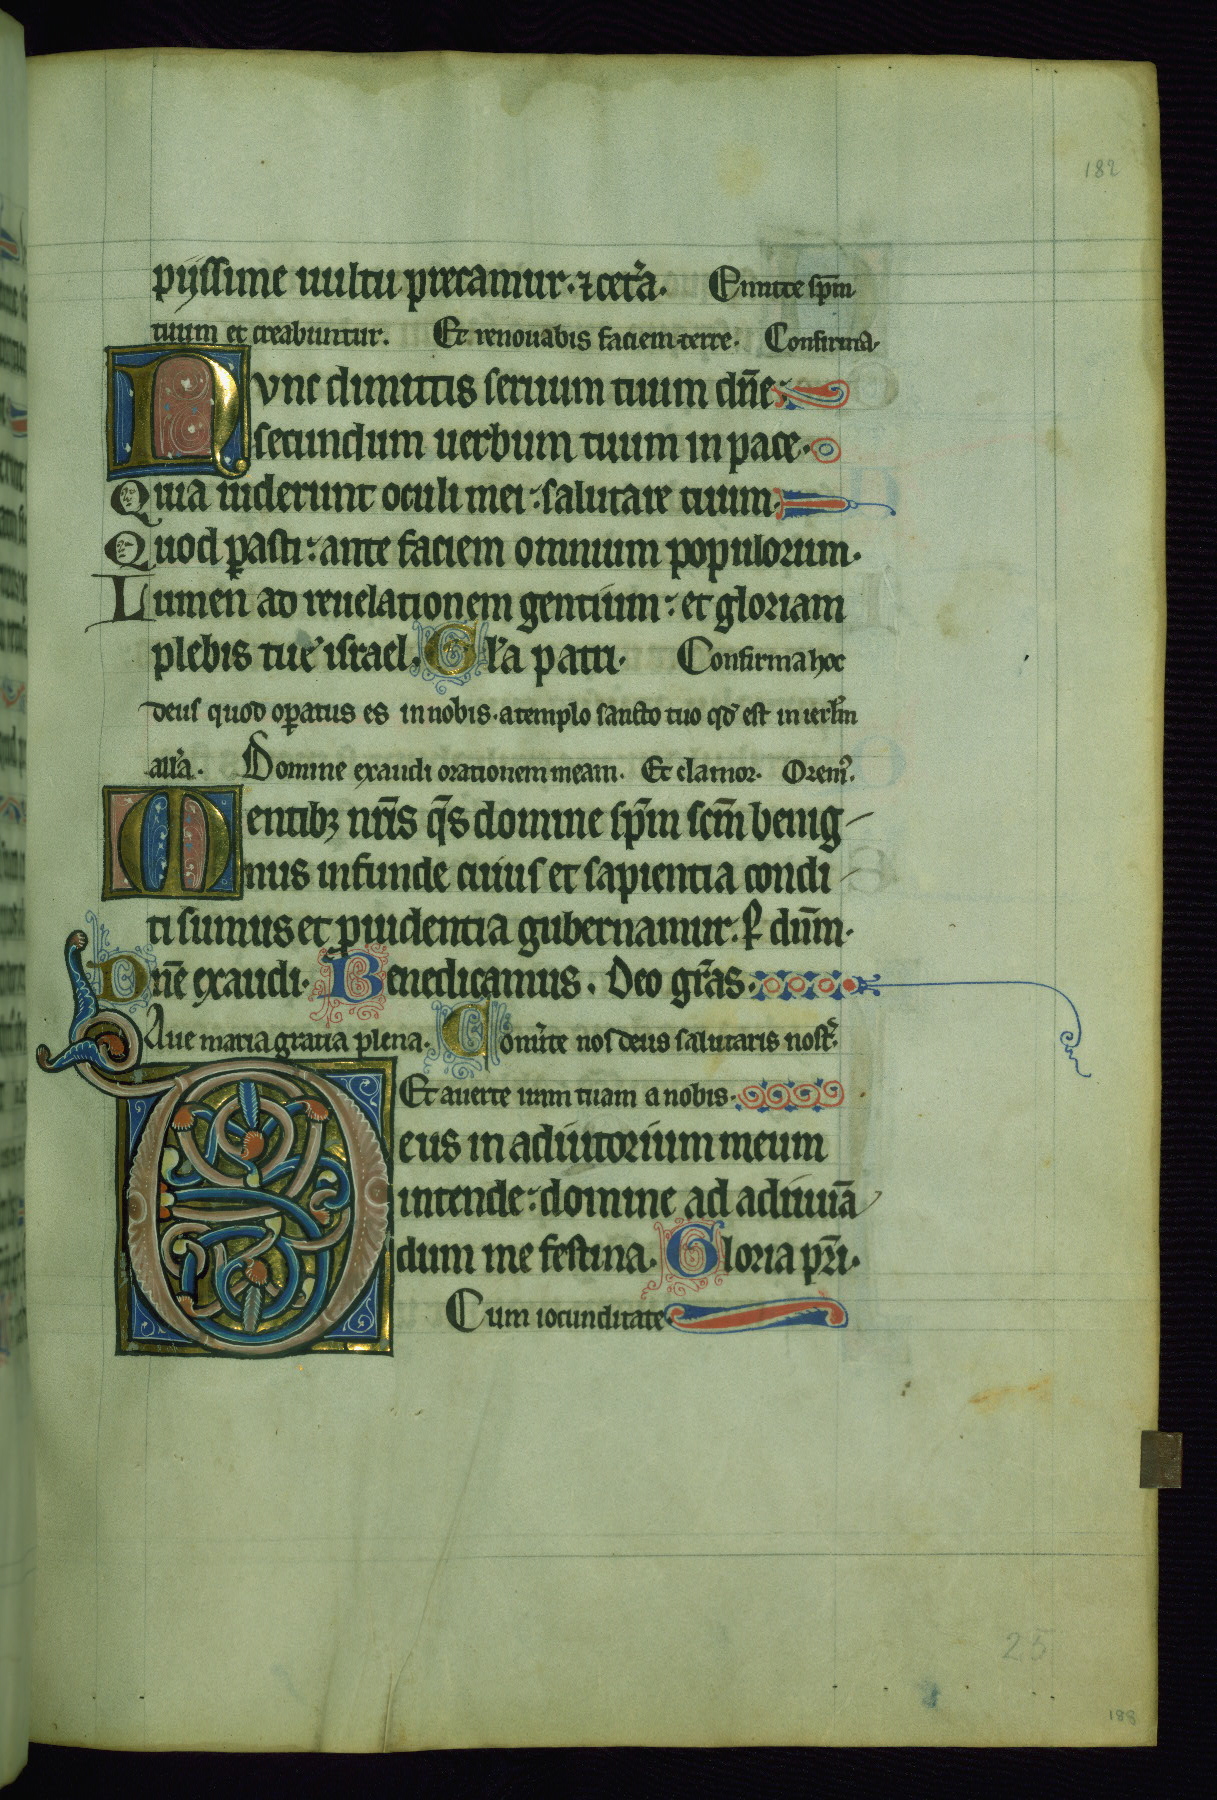 182
pijssime uultu precamur. ⁊ cet̾a. Emitte sp̄m
tuum et creabuntur. Et renouabis faciem terre. Confirma.
Nvnc dimittis seruum tuum dn̄e:
secundum uerbum tuum in pace.
Quia uiderunt oculi mei: salutare tuum.
Quod ꝑasti: ante faciem omnium populorum.
Lumen ad reuelationem gentium: et gloriam
plebis tue israel. Gl'a patri. Confirma hoc
deus quod oꝑatus es in nobis. a templo sancto tuo qd̾ est in ierl'm
all'a. Domine exaudi orationem meam. Et clamor. Orem̾.
Mentibꝫ nr̄is q̄s domine sp̄m sc̄m benig
nus infunde cuius et sapientia condi
ti sumus et ꝓuidentia gubernamur. ꝑ dūm.
Dn̄e exaudi. Benedicamus. Deo gr̄as.
Aue maria gratia plena. Conu̾te nos deus salutaris nost̾.
Et auerte iram tuam a nobis.
Deus in adiutorium meum
intende: domine ad adiuuā
dum me festina. Gloria pr̄i.
Cum iocunditate.
25
188